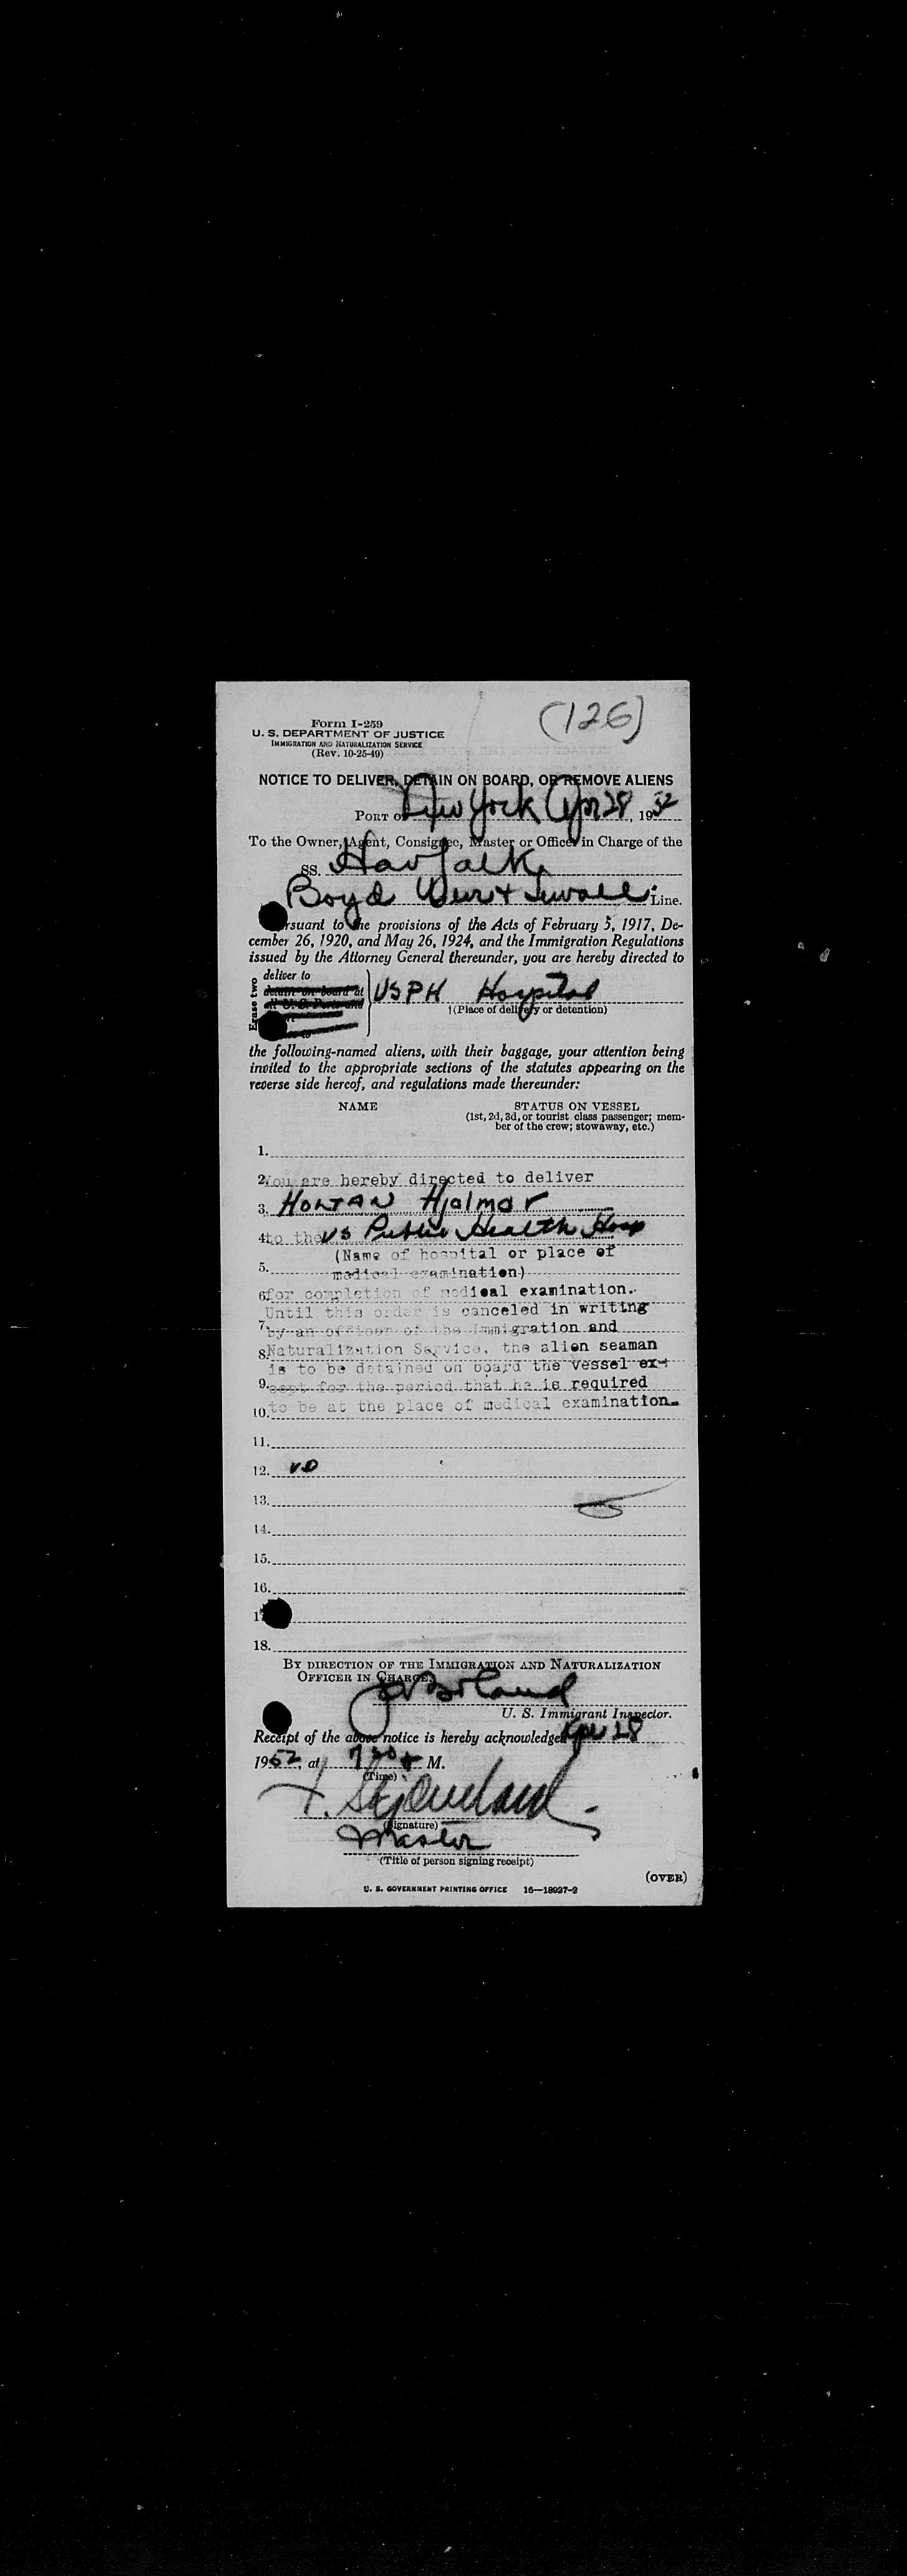 (126)
Form I-259
U. S. DEPARTMENT OF JUSTICE
IMMIGRATION AND NATURALIZATION SERVICE
(Rev. 10-25-49)
NOTICE TO DELIVER, DETAIN ON BOARD, OR REMOVE ALIENS
PORT OF New York Apr 28, 1952
To the Owner, Agent, Consignee, Master or Officer in Charge of the
SS. Havfalk
Boyd Weir & Sewall Line.
Pursuant to the provisions of the Acts of February 5, 1917, De-
cember 26, 1920, and May 26, 1924, and the Immigration Regulations
issued by the Attorney General thereunder, you are hereby directed to
Erase two
deliver to
detain on board at
USPH Hospital
†(Place of delivery or detention)
the following-named aliens, with their baggage, your attention being
invited to the appropriate sections of the statutes appearing on the
reverse side hereof, and regulations made thereunder:
NAME STATUS ON VESSEL
(1st, 2d, 3d, or tourist class passenger; mem-
ber of the crew; stowaway, etc.)
1.
2. You are hereby directed to deliver
3. HOLTAN Hjalmar
4. to the US Public Health Hosp
(Name of hospital or place of
5. medical examination)
6. for completion of medical examination.
Until this order is canceled in writing
7. by an officer of the Immigration and
8. Naturalization Service, the alien seaman
is to be detained on board the vessel ex-
9. cept for the period that he is required
10. to be at the place of medical examination.
11.
12. VD
13.
14.
15.
16.
17.
18.
BY DIRECTION OF THE IMMIGRATION AND NATURALIZATION
OFFICER IN CHARGE.
U. S. Immigrant Inspector.
Receipt of the above notice is hereby acknowledged Apr 28
1952, at 730 A M.
(Time)
(Signature)
Master
(Title of person signing receipt)
(OVER)
U. S. GOVERNMENT PRINTING OFFICE 16—18027-2